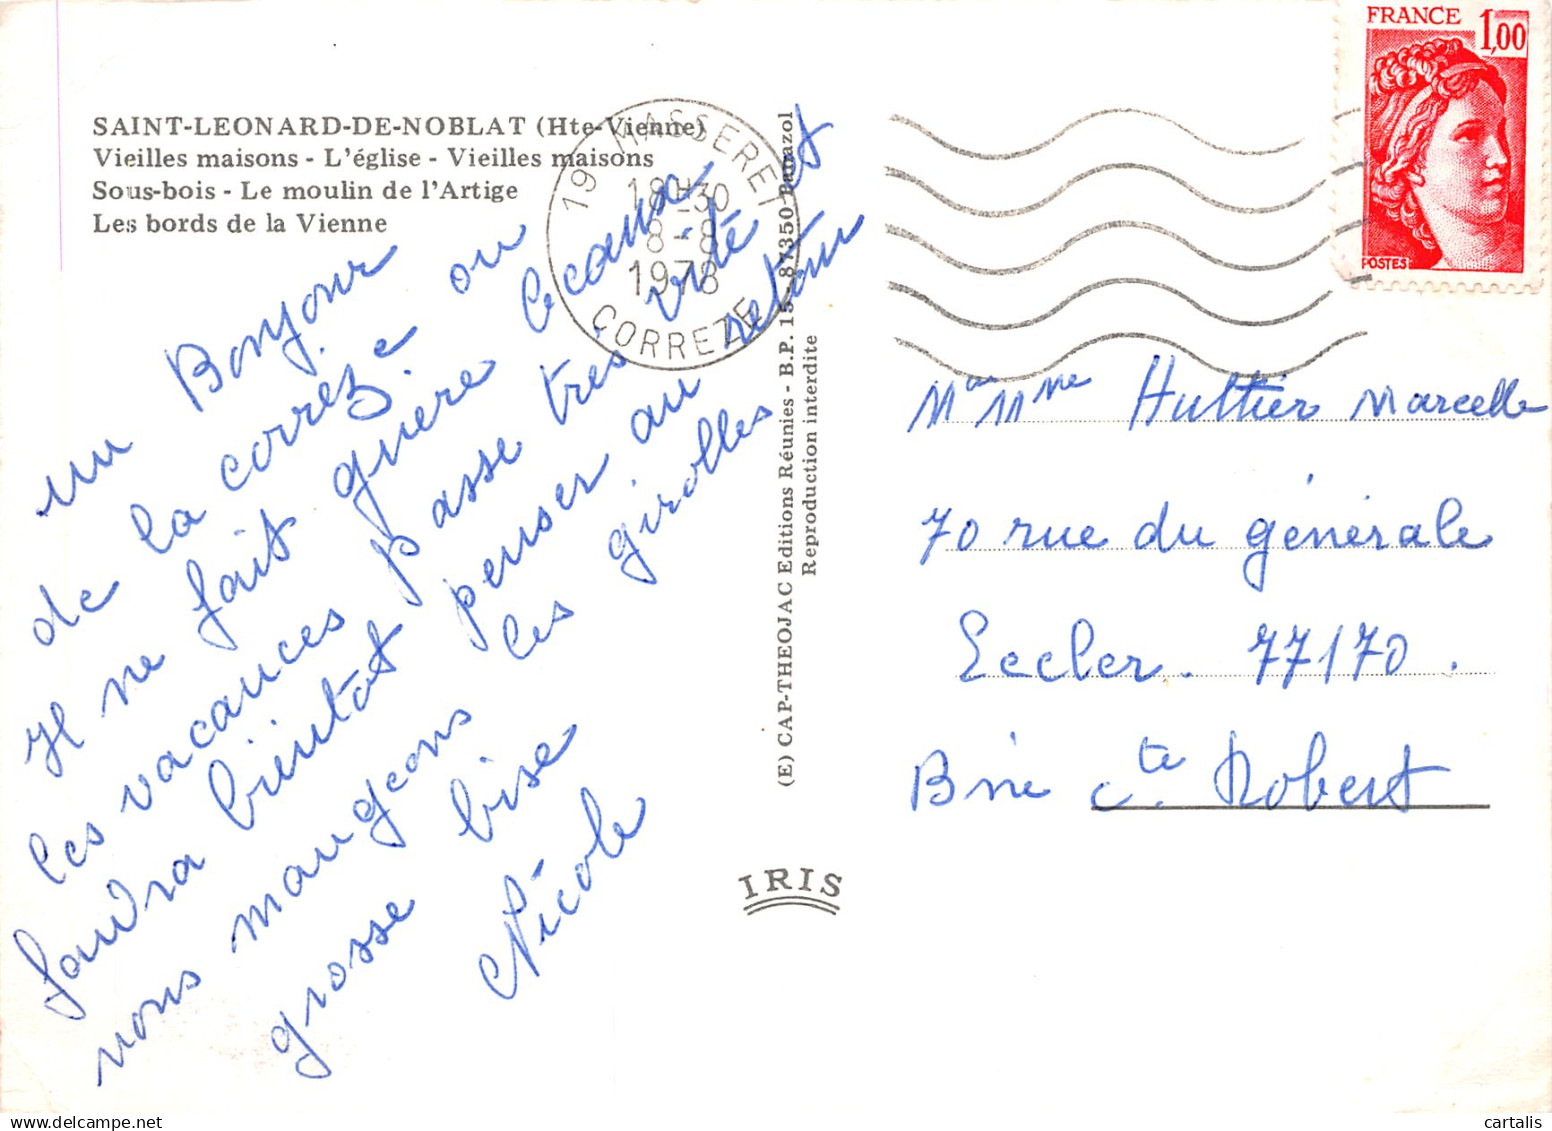 SAINT-LEONARD-DE-NOBLAT (Hte-Vienne)
Vieilles maisons - L'église - Vieilles maisons
Sous-bois - Le moulin de l'Artige
Les bords de la Vienne
un Bonjour
de la correze ou
il ne fait guère beaux
les vacances passe très vite et
faudra bientot penser au retour
nous mangeons les girolles
grosse bise
Nicole
(E) CAP-THEOJAC Editions Réunies - B.P. 15 - 87350 Panazol
Reproduction interdite
IRIS
19 MASSERET
18H30
8-8
1978
CORREZE
FRANCE 1,00
POSTES
Mme Hultier Marcelle
70 rue du générale
Lecler. 77170.
Brie cte Robert
cartalis